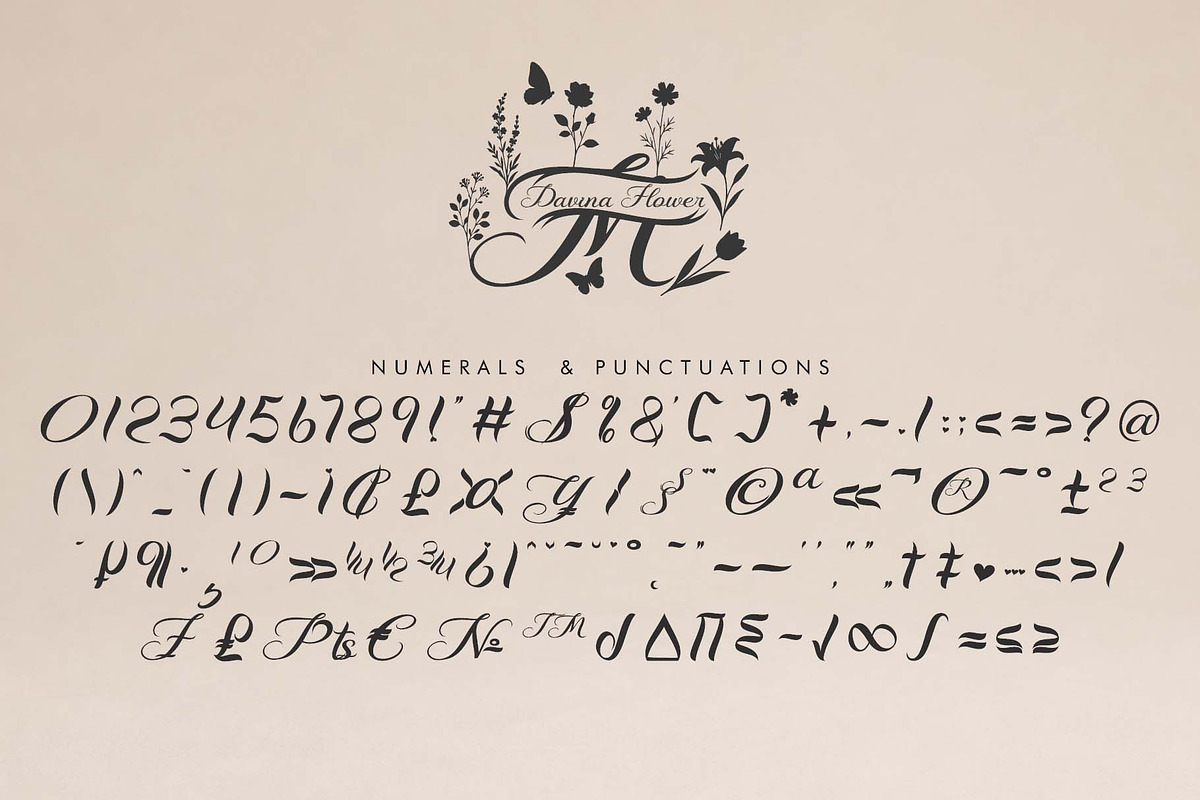 Davina Flower
M
NUMERALS & PUNCTUATIONS
0123456789!"#$%&'[]*+,-./:;<=>?@
(\)^_`(|)~¡¢£¤¥¦§¨©ª«¬®¯°±²³
´µ¶·¸¹º»¼½¾¿ı^ˇ˘˙˚˛˜˝–—‘’‚“”„†‡♥…<>/
₣₤₧€№™∂∆∏∑−√∞∫≈≤≥